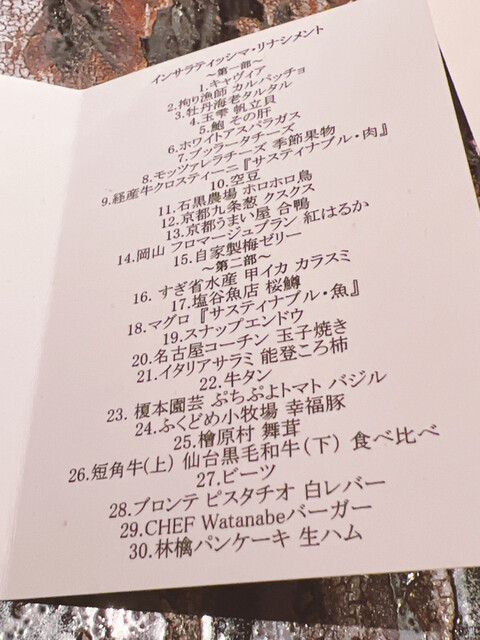 インサラティッシマ・リナシメント
～第一部～
1.キャヴィア
2.拘り漁師 カルパッチョ
3.牡丹海老タルタル
4.玉雫 帆立貝
5.鮑 その肝
6.ホワイトアスパラガス
7.ブッラータチーズ
8.モッツァレラチーズ 季節果物
9.経産牛クロスティーニ『サスティナブル・肉』
10.空豆
11.石黒農場 ホロホロ鳥
12.京都九条葱 クスクス
13.京都うまい屋 合鴨
14.岡山 フロマージュブラン 紅はるか
15.自家製梅ゼリー
～第二部～
16. すぎ省水産 甲イカ カラスミ
17.塩谷魚店 桜鱒
18.マグロ『サスティナブル・魚』
19.スナップエンドウ
20.名古屋コーチン 玉子焼き
21.イタリアサラミ 能登ころ柿
22.牛タン
23. 榎本園芸 ぷちぷよトマト バジル
24.ふくどめ小牧場 幸福豚
25.檜原村 舞茸
26.短角牛(上) 仙台黒毛和牛(下) 食べ比べ
27.ビーツ
28.ブロンテ ピスタチオ 白レバー
29.CHEF Watanabeバーガー
30.林檎パンケーキ 生ハム